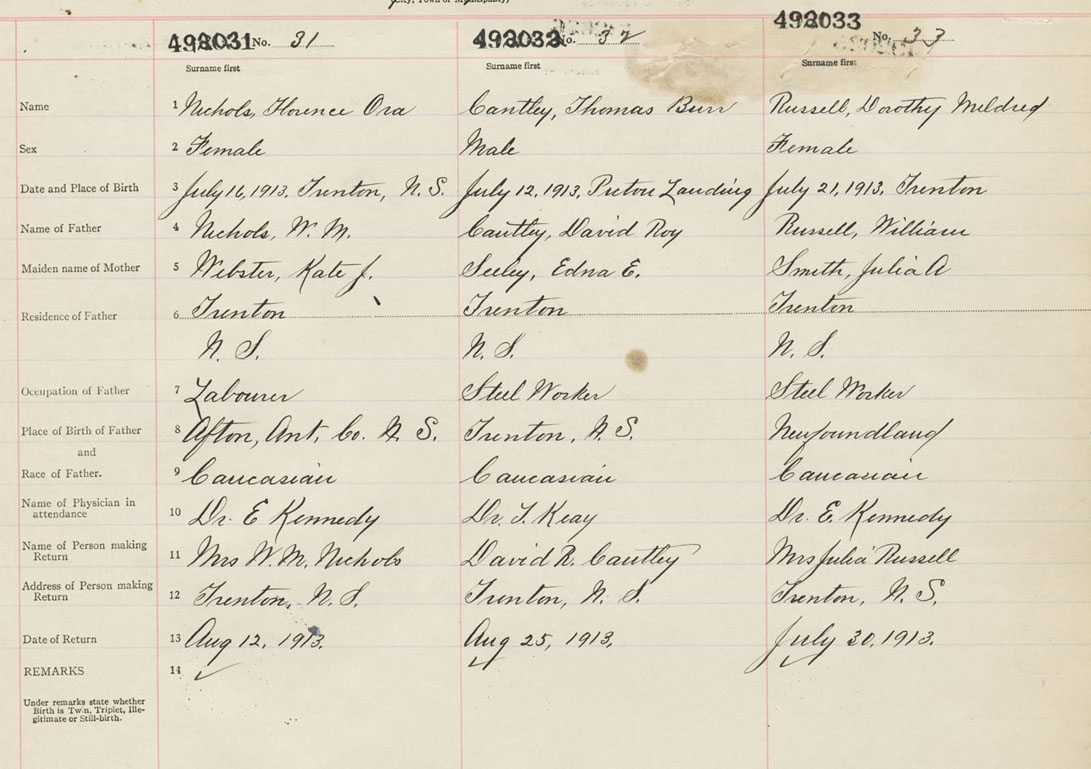 (City, Town or Municipality)
492031 No. 31 492032 No. 32 492033 No. 33
Surname first Surname first Surname first
Name 1 Nichols, Florence Ora Cantley, Thomas Burr Russell, Dorothy Mildred
Sex 2 Female Male Female
Date and Place of Birth 3 July 16, 1913. Trenton, N.S. July 12, 1913. Pictou Landing July 21, 1913. Trenton
Name of Father 4 Nichols, W. M. Cantley, David Roy Russell, William
Maiden name of Mother 5 Webster, Kate J. Seeley, Edna E. Smith, Julia A
Residence of Father 6 Trenton Trenton Trenton
N. S. N. S. N. S.
Occupation of Father 7 Labourer Steel Worker Steel Worker
Place of Birth of Father 8 Afton, Ant. Co. N. S. Trenton, N. S. Newfoundland
and
Race of Father. 9 Caucasian Caucasian Caucasian
Name of Physician in
attendance 10 Dr. E Kennedy Dr. J. Keay Dr. E. Kennedy
Name of Person making
Return 11 Mrs W. M. Nichols David R. Cantley Mrs Julia Russell
Address of Person making
Return 12 Trenton, N. S. Trenton, N. S. Trenton, N. S.
Date of Return 13 Aug 12, 1913. Aug 25, 1913. July 30, 1913.
REMARKS 14
Under remarks state whether
Birth is Twin, Triplet, Ille-
gitimate or Still-birth.